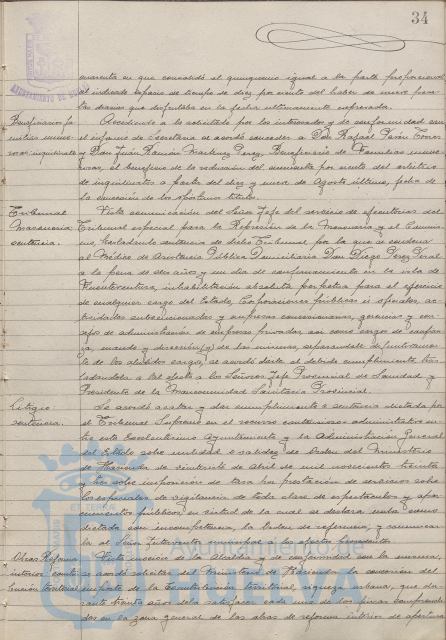 34
cuarenta en que consolidó el quinquenio igual a la parte proporcional
al indicado espacio de tiempo de diez por ciento del haber de nueve pese-
tas diarias que disfrutaba en la fecha últimamente expresada.
Beneficiarios fa Accediendo a lo solicitado por los interesados y de conformidad con
milias nume- el informe de Secretaría se acordó conceder a Don Rafael Terón Torres
rosas inquilinato y Don Juan Ramón Martínez Pérez, Beneficiarios de Familias nume-
rosas, el beneficio de la reducción del cincuenta por ciento del arbitrio
de inquilinatos a partir del diez y nueve de Agosto último, fecha de
la concesión de los oportunos títulos.
Tribunal Vista comunicación del Señor Jefe del servicio de ejecutorias del
Masonería Tribunal especial para la Represión de la Masonería y el Comunis-
sentencia. mo, trasladando sentencia de dicho Tribunal por la que se condena
al Médico de Asistencia Pública Domiciliaria Don Diego Pérez
a la pena de seis años y un día de confinamiento en la isla de
Fuerteventura, inhabilitación absoluta perpetua para el ejercicio
de cualquier cargo del Estado, Corporaciones públicas u oficiales, en-
tidades subvencionadas y empresas concesionarias, gerencias y con-
sejos de administración de empresas privadas, así como cargos de confian-
za, mando y dirección de las mismas, separándole definitivamen-
te de los aludidos cargos, se acordó darle el debido cumplimiento, tras-
ladándola a tal efecto a los Señores Jefe Provincial de Sanidad y
Presidente de la Mancomunidad Sanitaria Provincial.
Litigio Se acordó acatar y dar cumplimiento a sentencia dictada por
sentencia. el Tribunal Supremo en el recurso contencioso-administrativo en-
tre este Excelentísimo Ayuntamiento y la Administración General
del Estado sobre nulidad o validez de orden del Ministerio
de Hacienda de veintisiete de Abril de mil novecientos treinta
y tres sobre imposición de tasa por prestación de servicios sobre
los especiales de vigilancia de toda clase de espectáculos y espar-
cimientos públicos, en virtud de la cual se declara nula como
dictada con incompetencia, la orden de referencia, y comunicar-
la al Señor Interventor municipal a los efectos procedentes.
Obras Reforma Vista moción de la Alcaldía y de conformidad con la misma,
interior contri- se acordó solicitar del Ministerio de Hacienda la concesión del
bución territorial importe de la Contribución territorial, riqueza urbana, que du-
rante treinta años deba satisfacer cada una de las fincas comprendi-
das en la zona general de las obras de reforma interior de apertura